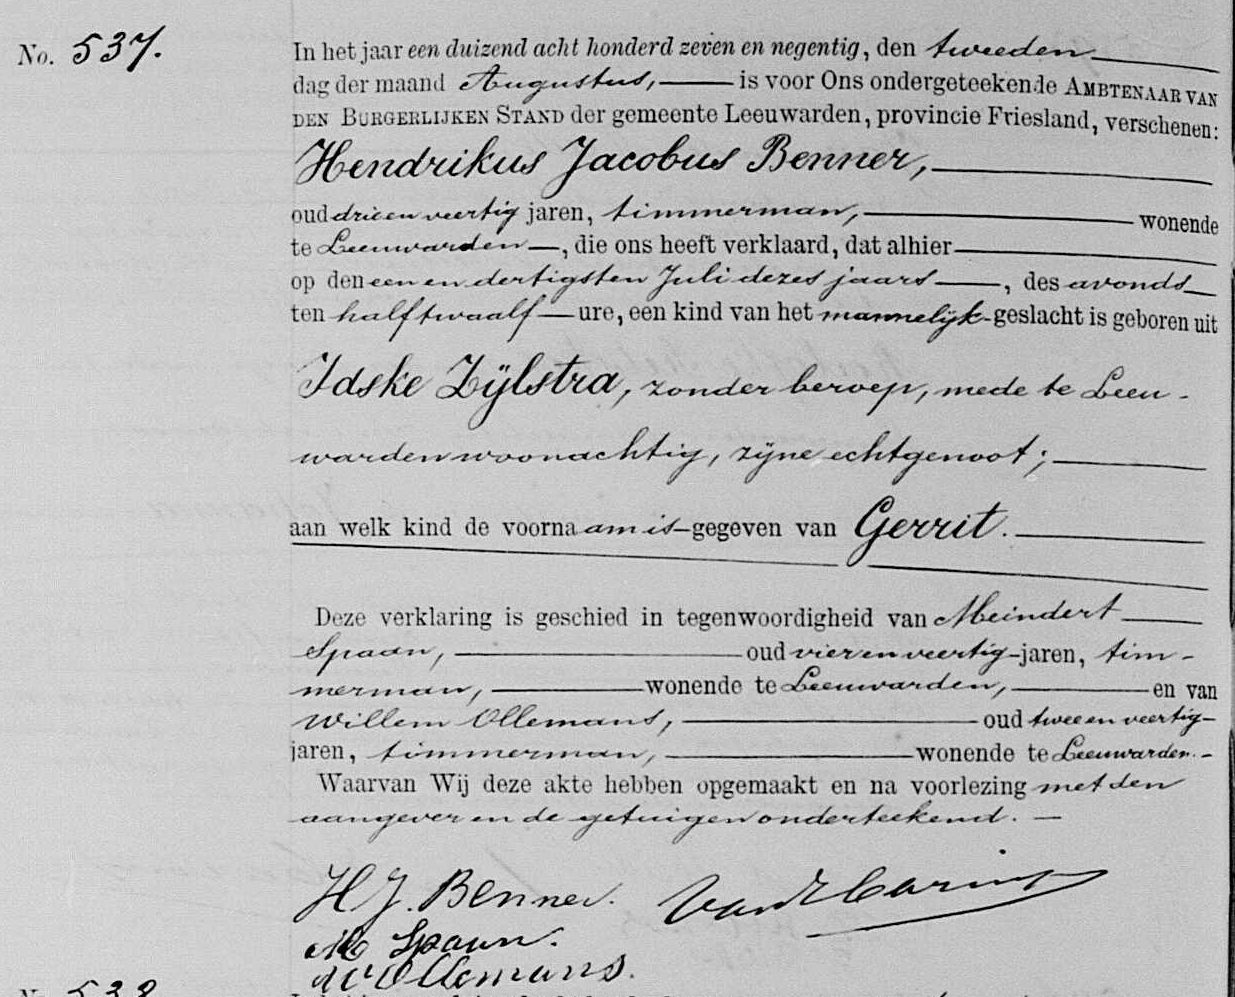 No. 537.
In het jaar een duizend acht honderd zeven en negentig, den tweeden
dag der maand Augustus, is voor Ons ondergeteekende AMBTENAAR VAN
DEN BURGERLIJKEN STAND der gemeente Leeuwarden, provincie Friesland, verschenen:
Hendrikus Jacobus Benner,
oud drie en veertig jaren, timmerman, wonende
te Leeuwarden, die ons heeft verklaard, dat alhier
op den een en dertigsten Juli dezes jaars, des avonds
ten half twaalf ure, een kind van het mannelijk geslacht is geboren uit
Idske Zijlstra, zonder beroep, mede te Leeu-
warden woonachtig, zijne echtgenoot;
aan welk kind de voornaam is gegeven van Gerrit.
Deze verklaring is geschied in tegenwoordigheid van Meindert
Spaan, oud vier en veertig jaren, tim-
merman, wonende te Leeuwarden, en van
Willem Ollemans, oud twee en veertig
jaren, timmerman, wonende te Leeuwarden.
Waarvan Wij deze akte hebben opgemaakt en na voorlezing met den
aangever en de getuigen onderteekend.
H J. Benner.
M Spaan.
W Ollemans.
538